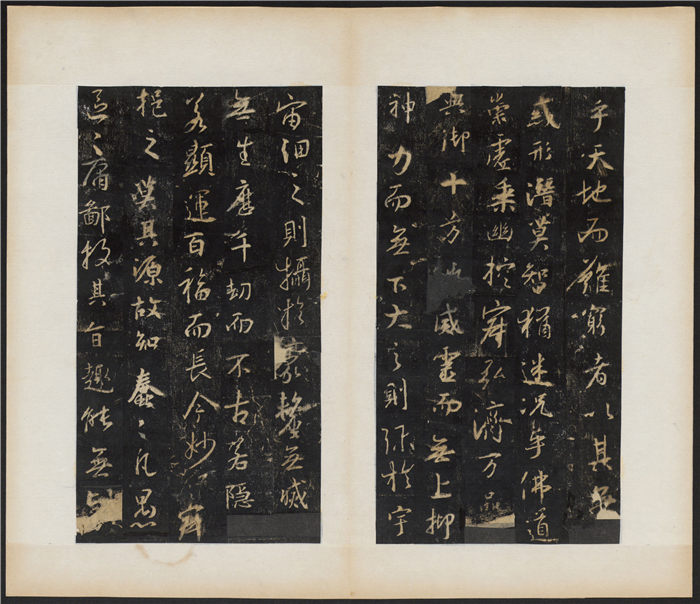 乎天地而難窮者以其無
或形潛莫智猶迷況乎佛道
崇虛乘幽控寂弘濟万品
典御十方威靈而無上抑
神力而無下大之則彌於宇
宙細之則攝於豪釐無滅
無生歷千劫而不古若隱
若顯運百福而長今妙寂
挹之莫其源故知蠢々凡愚
區々庸鄙投其旨趣能無